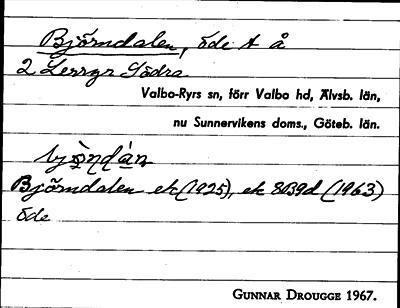 Björndalen, öde t å
2 Lerrgr Södra
Valbo-Ryrs sn, förr Valbo hd, Älvsb. län,
nu Sunnervikens doms., Göteb. län.
Björndalen ek (1925), ek 8B9d (1963)
öde
GUNNAR DROUGGE 1967.